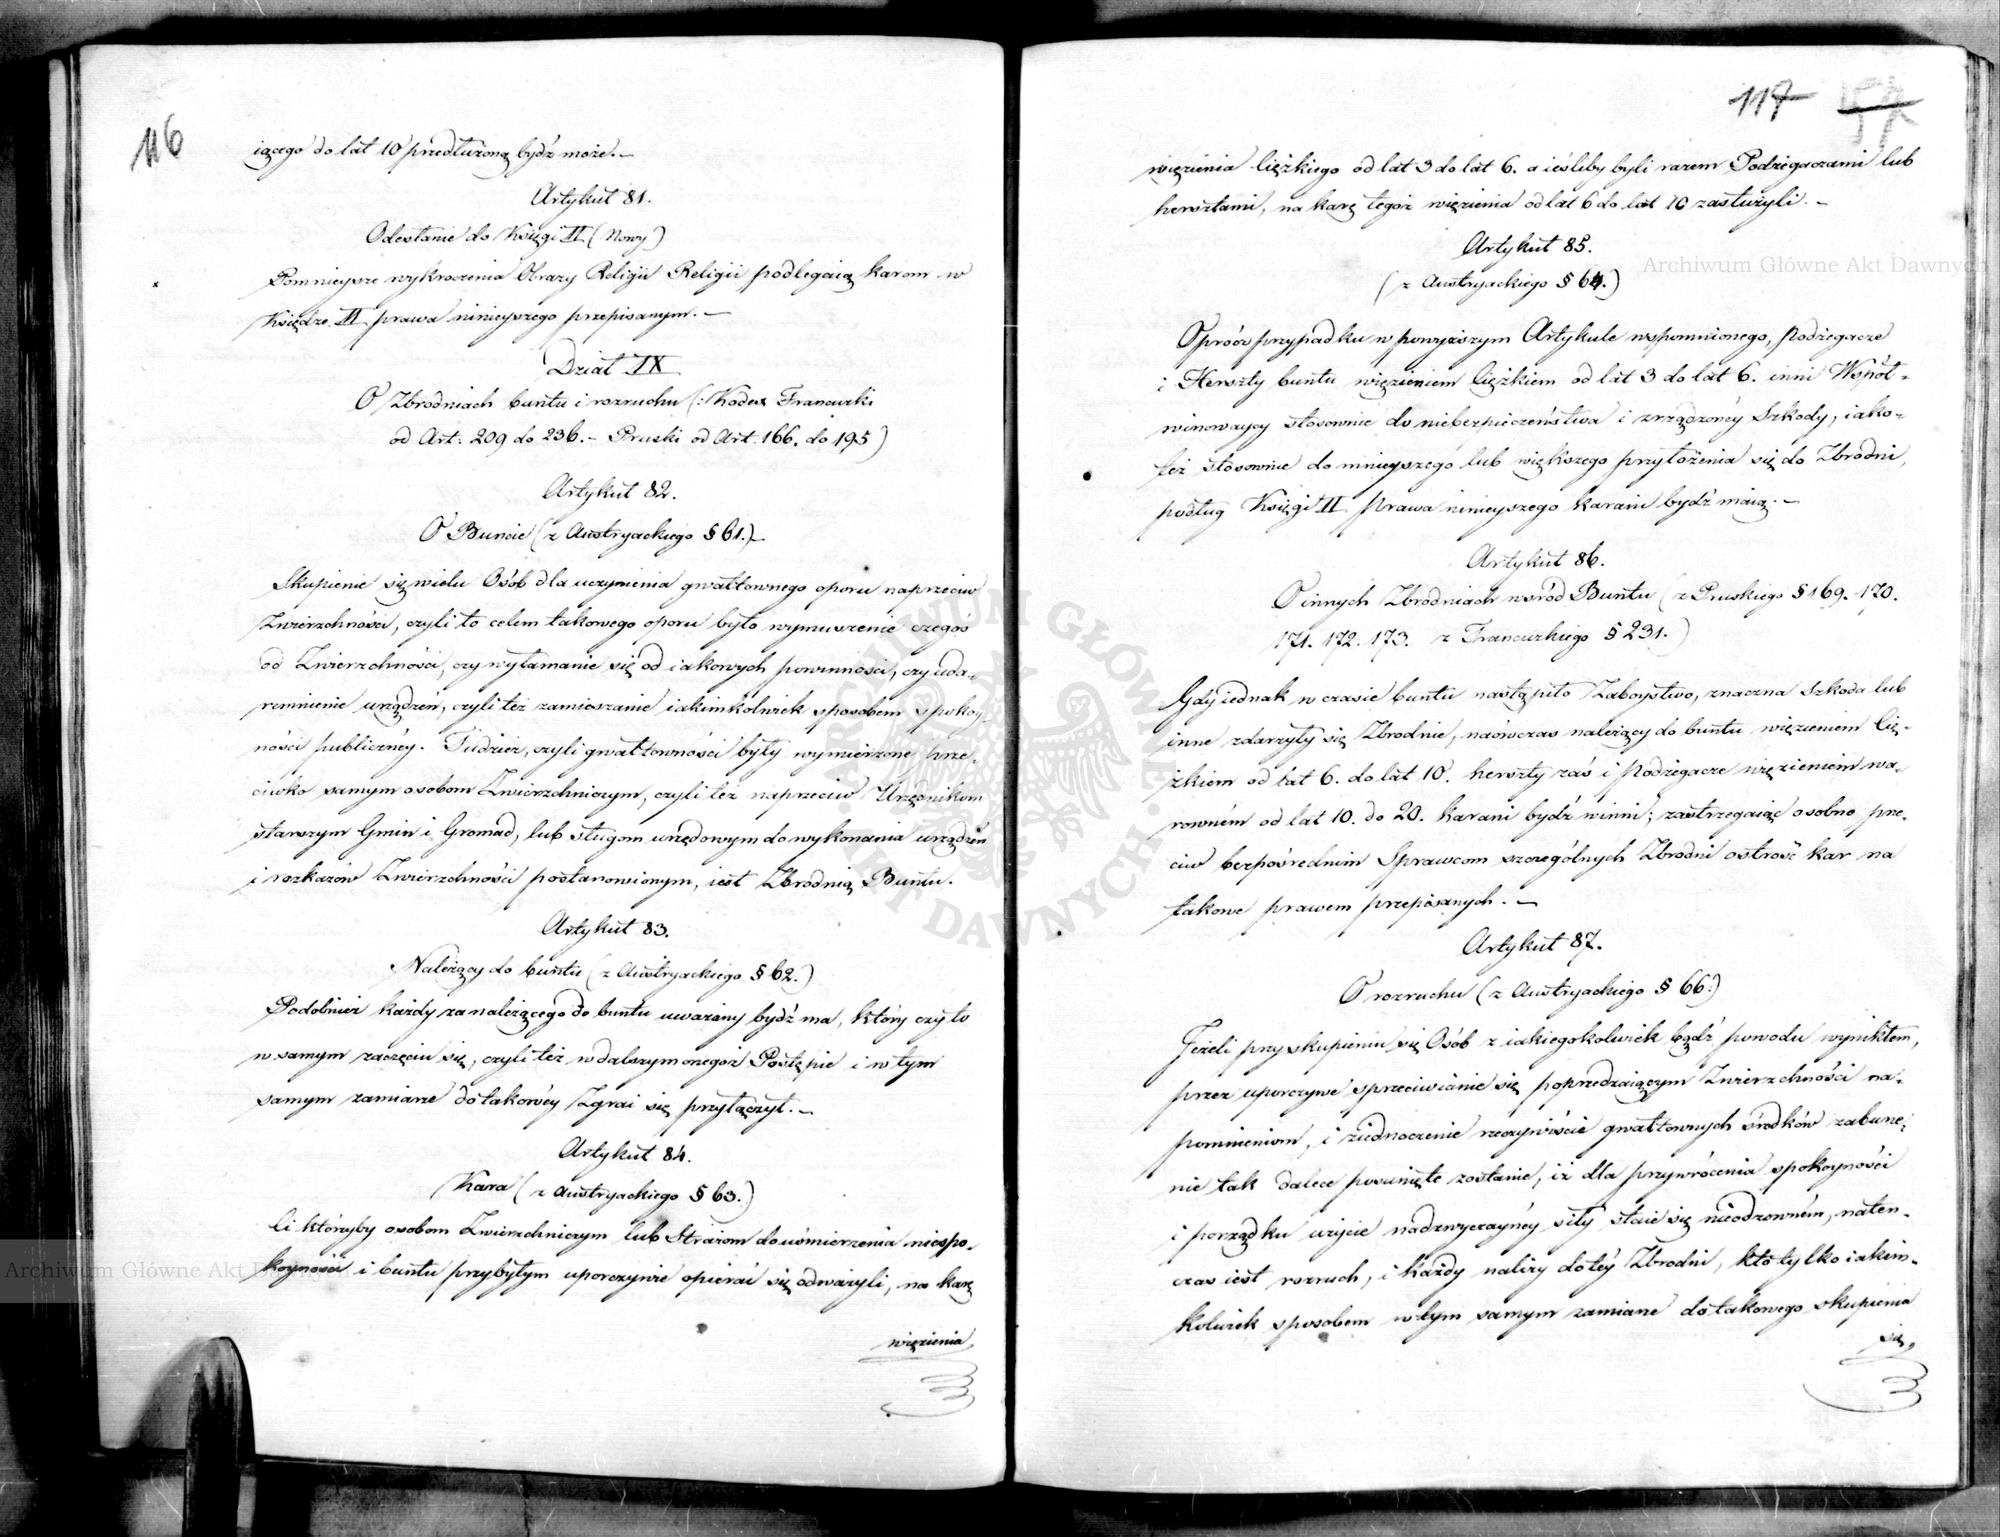 116
iącego do lat 10 przedłużoną bydź może.—
Artykuł 81.
Odesłanie do Księgi II (Nowy)
Pomnieysze wykroczenia Obrazy Religii Religii podlegaią karom w
Księdze II prawa ninieyszego przepisanym.—
Dział IX
O Zbrodniach buntu i rozruchu (: Kodex Francuzki
od Art: 209 do 236.— Pruski od Art. 166. do 195)
Artykuł 82.
O Buncie (z Austryackiego § 61.)—
Skupienie się wielu Osób dla uczynienia gwałtownego oporu naprzeciw
Zwierzchności, czyli to celem takowego oporu było wymuszenie czegoś
od Zwierzchności, czy wyłamanie się od iakowych powinności, czy uda-
remnienie urządzeń, czyli też zamieszanie iakimkolwiek sposobem spokoy-
ności publicznéy. Tudzież, czyli gwałtowności były wymierzone prze-
ciwko samym osobom Zwierzchniczym, czyli też naprzeciw Urzędnikom
starszym Gmin i Gromad, lub sługom urzędowym do wykonania urządzeń
i rozkazów Zwierzchności postanowionym, iest Zbrodnią Buntu.
Artykuł 83.
Należący do buntu (z Austryackiego § 62.)
Podobnież każdy za należącego do buntu uważany bydź ma, który czy to
w samym zaczęciu się, czyli też w dalszym onegoż Postępie i w tym
samym zamiarze do takowéy Zgrai się przyłączył.—
Artykuł 84.
Kara (z Austryackiego § 63.)
Ci którzyby osobom Zwierzchniczym lub Strażom do uśmierzenia niespo-
koyności i buntu przybyłym uporczywie opierać się odważyli, na karę
więzienia
117
więzienia Ciężkiego od lat 3 do lat 6. a ieśliby byli razem Podżegaczami lub
hersztami, na karę tegoż więzienia od lat 6 do lat 10 zasłużyli.—
Artykuł 85.
(z Austryackiego § 64.)
Oprócz przypadku w powyższym Artykule wspomnionego, podżegacze
i Herszty buntu więzieniem Ciężkiem od lat 3 do lat 6. inni Współ-
winowaycy stosownie do niebezpieczeństwa i zrządzonéy Szkody, iako-
też stosownie do mnieyszego lub większego przyłożenia się do Zbrodni,
podług Księgi II prawa ninieyszego karani bydź maią.—
Artykuł 86.
O innych Zbrodniach wśród Buntu (z Pruskiego § 169. 170.
171. 172. 173. z Francuzkiego § 231.)
Gdy iednak w czasie buntu nastąpiło Zaboystwo, znaczna szkoda lub
inne zdarzyły się Zbrodnie, naówczas należący do buntu więzieniem Cię-
żkiem od lat 6. do lat 10. herszty zaś i podżegacze więzieniem wa-
rowném od lat 10. do 20. karani bydź winni; zastrzegaiąc osobno prze-
ciw bezpośrednim Sprawcom szczególnych Zbrodni ostrość kar na
takowe prawem przepisanych.—
Artykuł 87.
O rozruchu (z Austryackiego § 66.)
Jeżeli przy skupieniu się Osób z iakiegokolwiek bądź powodu wynikłem,
przez uporczywe sprzeciwianie się poprzedzaiącym Zwierzchności na-
pomnieniom, i ziednoczenie rzeczywiście gwałtownych środków zaburze-
nie tak dalece posunięte zostanie, iż dla przywrócenia spokoyności
i porządku użycie nadzwyczaynéy siły staie się nieodzowném, naten-
czas iest rozruch, i Każdy należy do téy Zbrodni, kto tylko iakim-
kolwiek sposobem w tym samym zamiarze do takowego skupienia
się,
Archiwum Główne Akt Dawnych
Archiwum Główne Akt Dawnych
ARCHIWUM GŁÓWNE AKT DAWNYCH